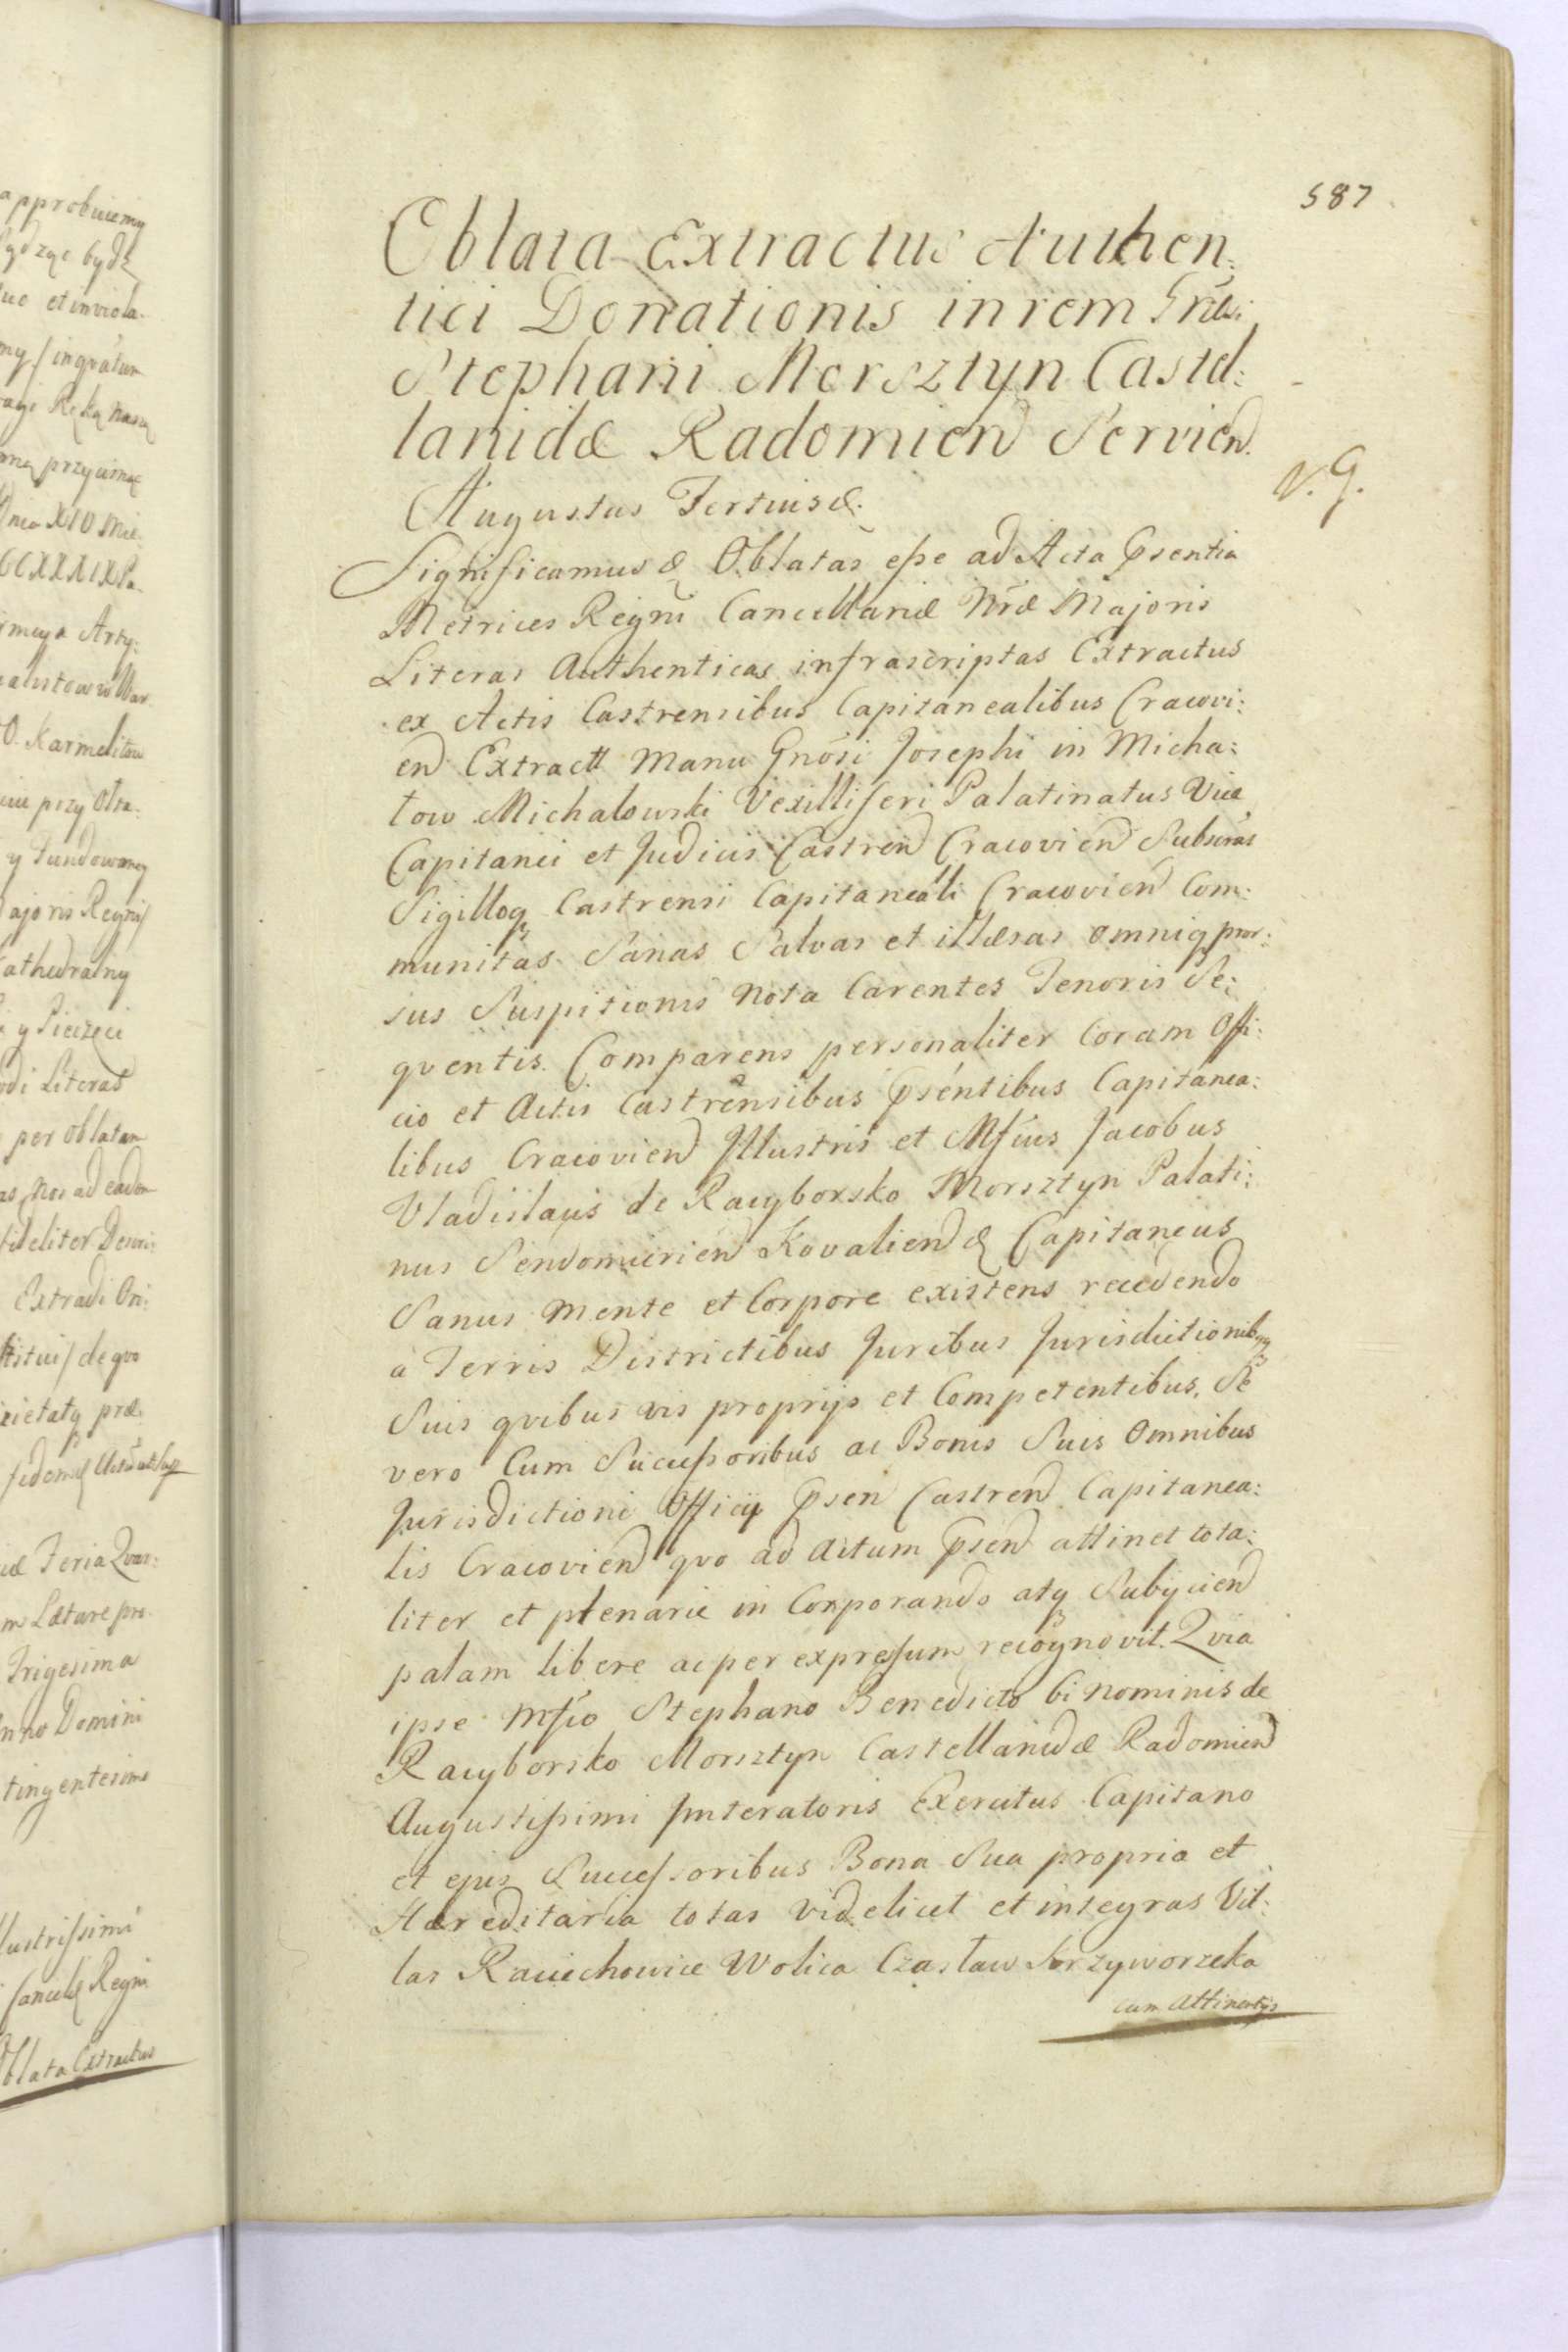 approbuiemy
bydź
et inviola-
ingrátum
Ręką naszą
przycisnąć
XIV Mie-
CCXXXIX Pa-
Arty:
O. Karmelitow
przy Otra-
y Fundowaney
Majoris Regni
Cathedralny
y Pieczęci
Literas
per oblatam
Nos ad eadem
fideliter Descri:
Extradi Ori:
de quo
præ-
Feria Quar:
Lætare pro-
Trigesima
Anno Domini
tingentesimo
lustrissimi
Cancell Regni
Oblata Extractus
587
Oblata Extractus Authen:
tici Donationis in rem Gnēsi:
Stephani Morsztyn Castel:
lanidæ Radomien Servien.
V. G.
Augustus Tertius &.
Significamus & Oblatas esse ad Acta Psentia
Metrices Regni Cancellariæ Nræ Majoris
Literas Authenticas infrascriptas Extractus
ex Actis Castrensibus Capitanealibus Cracovi:
en Extractt Manu Gnosi Josephi in Micha:
low Michalowski Vexilliferi Palatinatus Vice
Capitanei et Judicis Castren Cracovien Subscras
Sigilloq Castrensi Capitaneali Cracovien Com:
munitas Sanas Salvas et illæsas omniq pror:
sus Suspitionis nota Carentes Tenoris Se:
quentis. Comparens personaliter Coram Offi:
cio et Actis Castrensibus Psentibus Capitanea:
libus Cracovien Jllustris et Mfcus Jacobus
Vladislaus de Racyborsko Morsztyn Palati:
nus Sendomirien Kovalien & Capitaneus
Sanus mente et Corpore existens recedendo
à Terris Districtibus Juribus Jurisdictionibq
Suis quibus vis proprijs et Competentibus, Se
vero Cum Successoribus ac Bonis Suis Omnibus
Jurisdictioni Officij Psen Castren Capitanea:
lis Cracovien quo ad Actum Psen attinet tota:
liter et plenarie in Corporando atq Subijcien
palam libere ac per expressum recognovit. Quia
ipse Mfco Stephano Benedicto bi nominis de
Racyborsko Morsztyn Castellanidæ Radomien
Augustissimi Jmteratoris Exercitus Capitano
et ejus Successoribus Bona Sua propria et
Hæreditaria totas videlicet et integras Vil:
las Raciechowice Wolica Czasław Krzyworzeka
cum attinentijs